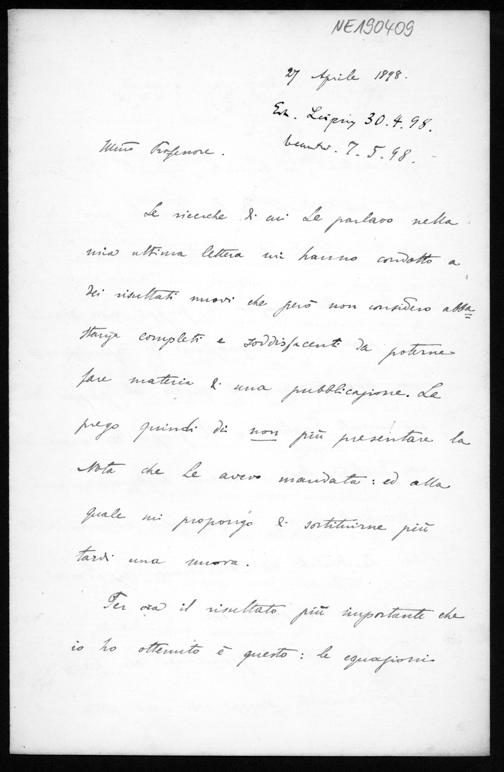 NE190409
27 Aprile 1898.
Erh. Leipzig 30.4.98.
beantw. 7.5.98.
Illmo Professore.
Le ricerche di cui Le parlavo nella
mia ultima lettera mi hanno condotto a
dei risultati nuovi che però non considero abba=
stanza completi e soddisfacenti da poterne
fare materia di una pubblicazione. La
prego quindi di non più presentare la
Nota che Le avevo mandata: ed alla
quale mi propongo di sostituirne più
tardi una nuova.
Per ora il risultato più importante che
io ho ottenuto è questo: le equazioni